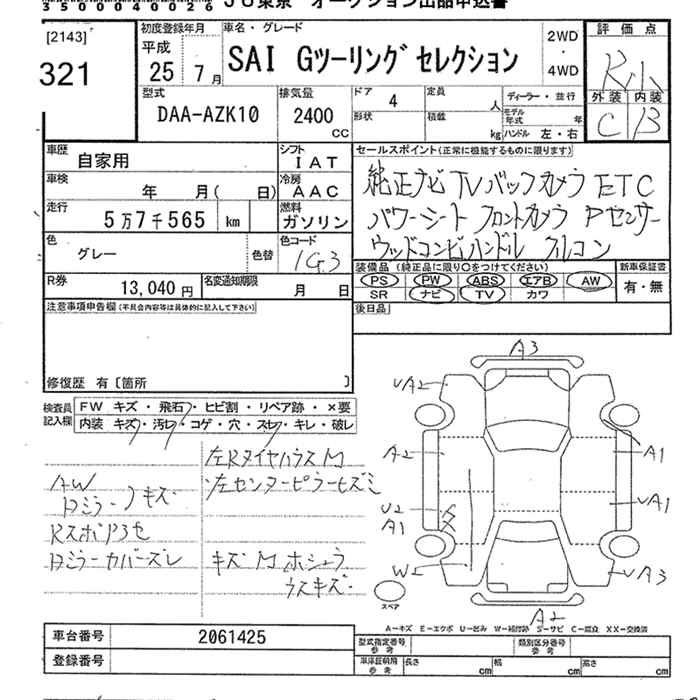 35000040026 JU東京 オークション出品申込書
[2143]
321
初度登録年月
平成
25 年 7 月
車名・グレード
SAI Gツーリングセレクション
2WD
・
4WD
評価点
外装 内装
C B
型式
DAA-AZK10
排気量
2400
CC
ドア 4
形状
定員 人
積載 kg
ディーラー・並行
モデル年式 年
ハンドル 左・右
車歴 自家用
シフト IAT
車検 年 月( 日)
冷房 AAC
走行 5万7千565 km
燃料 ガソリン
色 グレー 色替
色コード 1G3
R券 13,040円
名変通知期限 月 日
セールスポイント(正常に機能するものに限ります)
純正ナビ TV バックカメラ ETC
パワーシート フロントカメラ Pセンサー
ウッドコンビハンドル アルコン
装備品 (純正品に限り○をつけてください)
PS PW ABS エアB AW
SR ナビ TV カワ
新車保証書
有・無
注意事項申告欄(不具合内容等は具体的に記入して下さい)
後日品
修復歴 有〔箇所 〕
検査員記入欄
FW キズ・飛石・ヒビ割・リペア跡・×要
内装 キズ・汚れ・コゲ・穴・スレ・キレ・破レ
左Rタイヤハウス M
AW
左センターピラーヒズミ
ドミラー/キズ
ドミラーカバーズレ
キズ M
ウスキズ
A3
UA2
A2
A1
U2
A1
UA1
W2
UA3
A2
スペア
A―キズ E―エクボ U―凹み W―補修跡 S―サビ C―腐食 XX―交換済
車台番号 2061425
登録番号
型式指定番号 参考
類別区分番号 参考
車庫証明用 参考
長さ cm
幅 cm
高さ cm